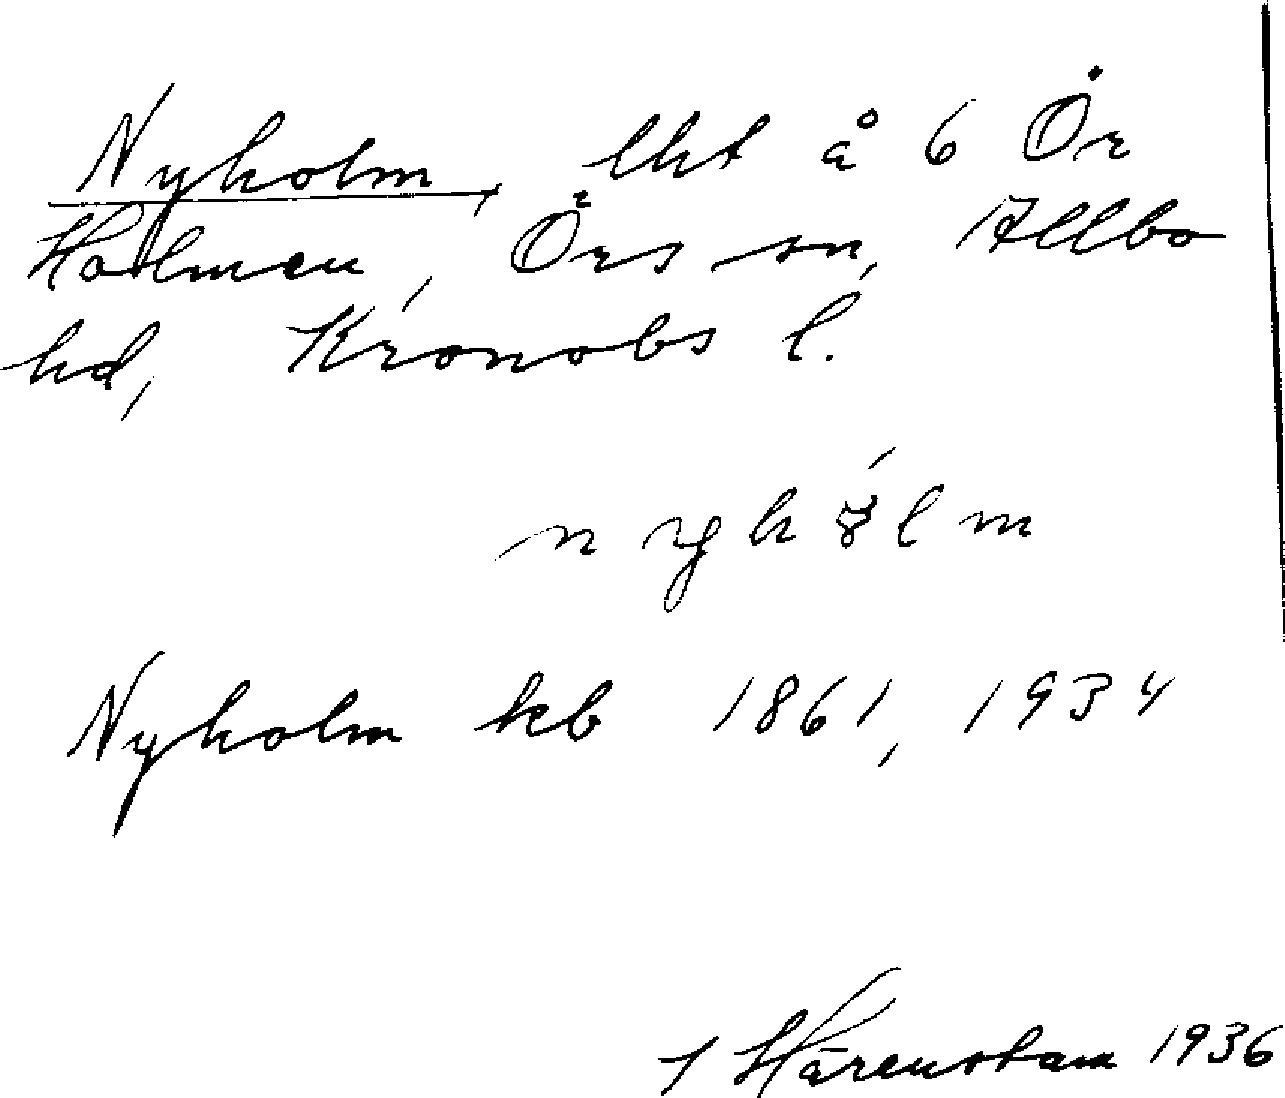 Nyholm, lht å 6 Ör
Holmen, Örs sn, Allbo
hd, Kronobs l.
Nyholm kb 1861, 1934
Härenstam 1936